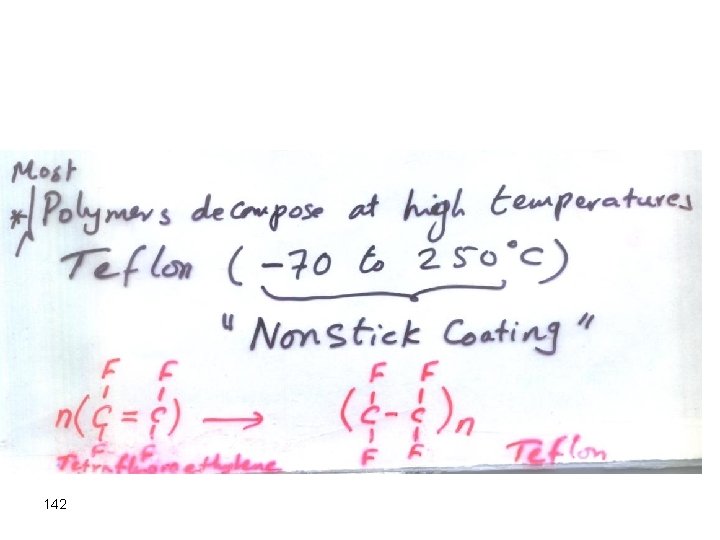 Most
* Polymers decompose at high temperatures
Teflon (-70 to 250°C)
"Nonstick Coating"
F F F F
n(C = C) → (C - C)n
F F F F
Tetrafluoroethylene Teflon
142